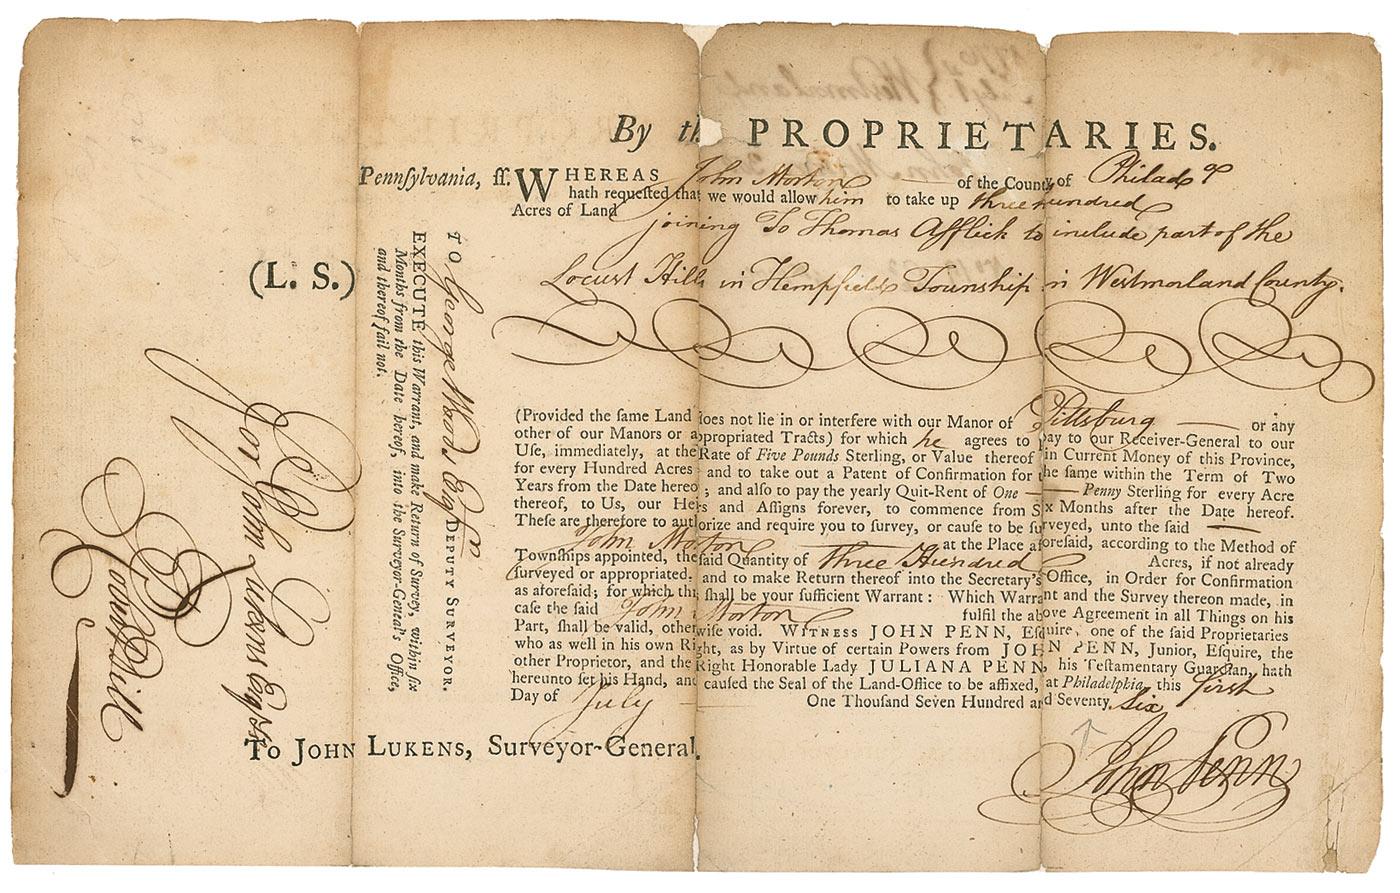 By th PROPRIETARIES.
Pennsylvania, ss. WHEREAS John Morton of the County of Philada
hath requested that we would allow him to take up three hundred
Acres of Land
joining To Thomas Afflick to include part of the
Locust Hills in Hempfield Township in Westmorland County.
(L. S.)
(Provided the same Land does not lie in or interfere with our Manor of Pittsburg or any
other of our Manors or appropriated Tracts) for which he agrees to pay to our Receiver-General to our
Use, immediately, at the Rate of Five Pounds Sterling, or Value thereof in Current Money of this Province,
for every Hundred Acres and to take out a Patent of Confirmation for the same within the Term of Two
Years from the Date hereof; and also to pay the yearly Quit-Rent of One Penny Sterling for every Acre
thereof, to Us, our Heirs and Assigns forever, to commence from Six Months after the Date hereof.
These are therefore to authorize and require you to survey, or cause to be surveyed, unto the said
John Morton at the Place aforesaid, according to the Method of
Townships appointed, the said Quantity of three Hundred Acres, if not already
surveyed or appropriated. and to make Return thereof into the Secretary's Office, in Order for Confirmation
as aforesaid; for which this shall be your sufficient Warrant: Which Warrant and the Survey thereon made, in
case the said John Morton fulfil the above Agreement in all Things on his
Part, shall be valid, otherwise void. WITNESS JOHN PENN, Esquire, one of the said Proprietaries
who as well in his own Right, as by Virtue of certain Powers from JOHN PENN, Junior, Esquire, the
other Proprietor, and the Right Honorable Lady JULIANA PENN, his Testamentary Guardian, hath
hereunto set his Hand, and caused the Seal of the Land-Office to be affixed, at Philadelphia, this first
Day of July One Thousand Seven Hundred and Seventy six
To JOHN LUKENS, Surveyor-General.
John Penn
To George Woods Esqr DEPUTY SURVEYOR.
EXECUTE this Warrant, and make Return of Survey, within six
Months from the Date hereof, into the Surveyor-General's Office,
and thereof fail not.
For John Lukens Esqr SG